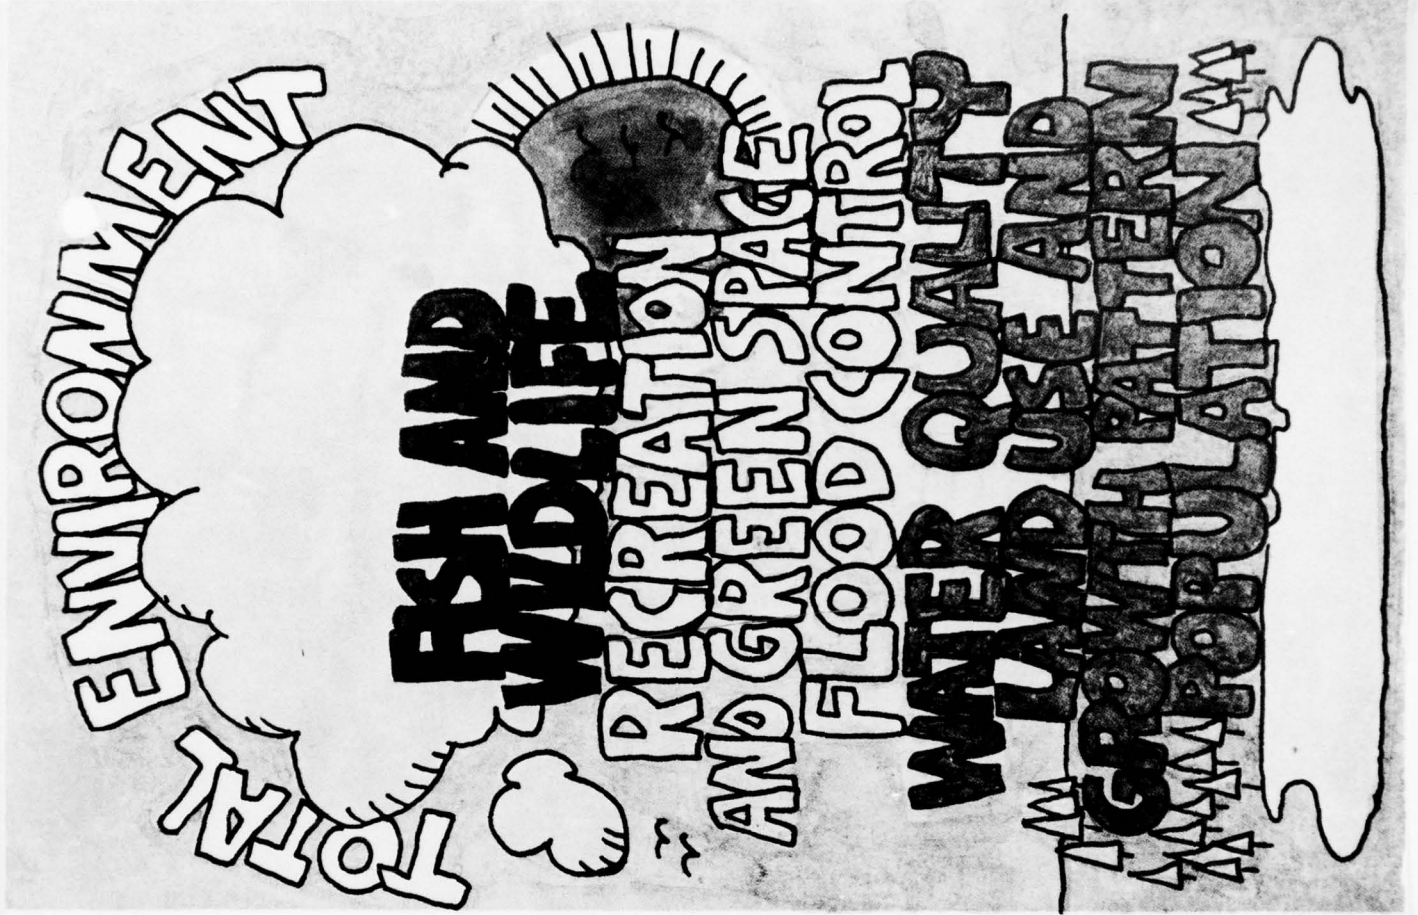 TOTAL ENVIRONMENT
FISH AND
WILDLIFE
RECREATION
AND GREEN SPACE
FLOOD CONTROL
WATER QUALITY
LAND USE AND
GROWTH PATTERN
POPULATION